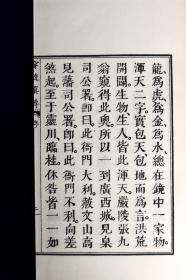 龍為虎為金為水總在鏡中一家物
渾天二字實包天包地而為言洪荒
開闢生物生人皆此渾天嚴陵張九
翁窺得此奧所以一到廣西城見泉
司公署即曰此衙門大利敵文山高
見藩司公署即曰此衙門不利向差
然起至于靈川臨桂休咎皆一一如
序
二